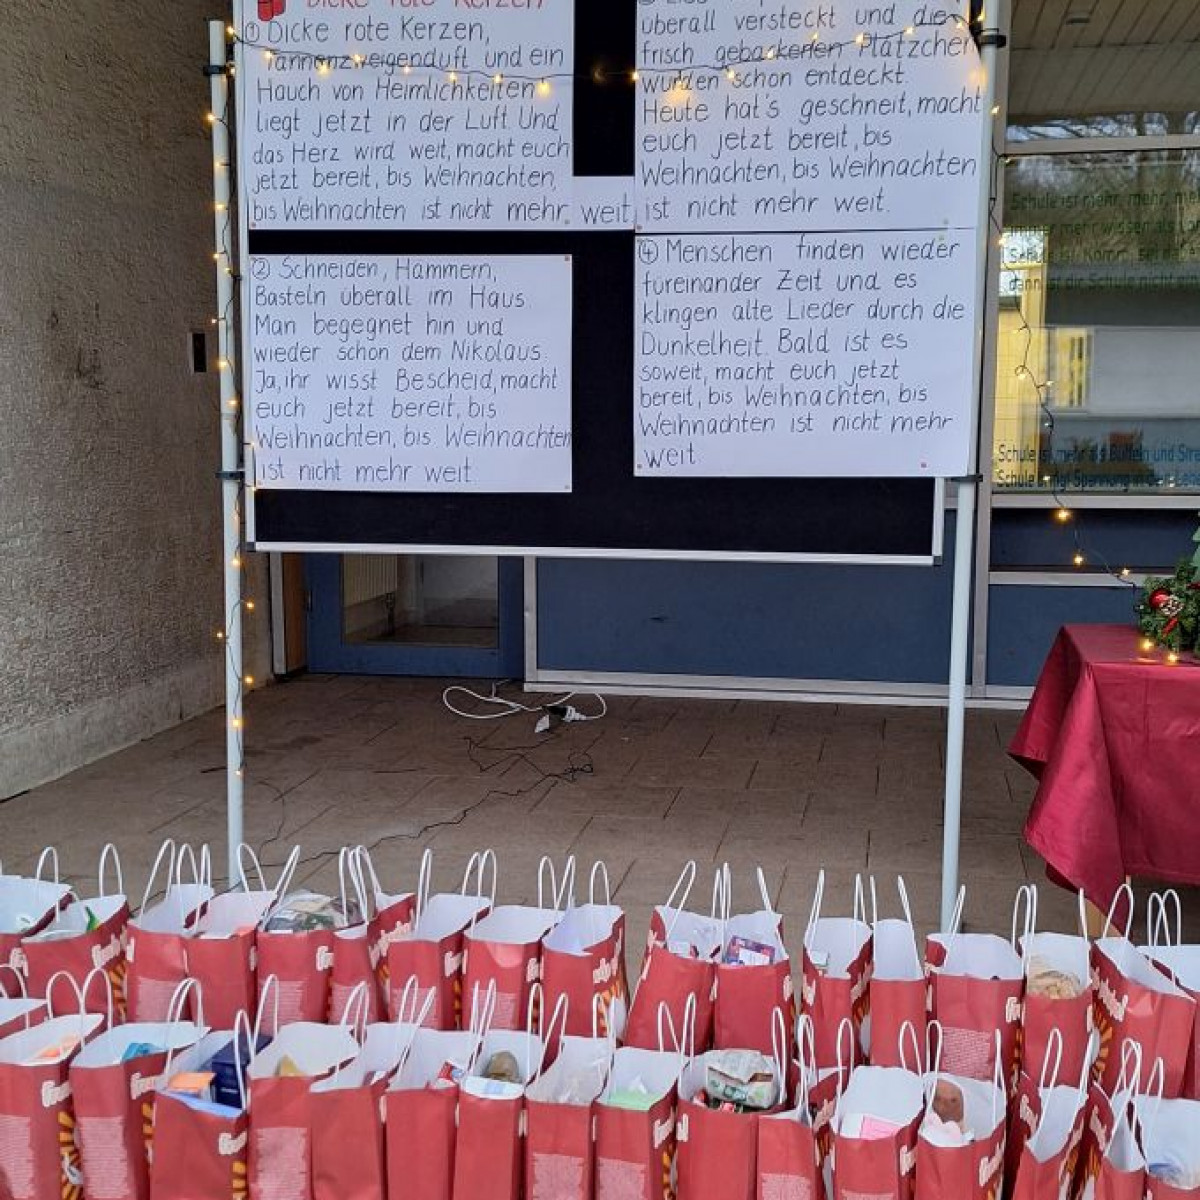 Dicke rote Kerzen
① Dicke rote Kerzen,
Tannenzweigenduft und ein
Hauch von Heimlichkeiten
liegt jetzt in der Luft. Und
das Herz wird weit, macht euch
jetzt bereit, bis Weihnachten,
bis Weihnachten ist nicht mehr weit.
② Schneiden, Hämmern,
Basteln überall im Haus.
Man begegnet hin und
wieder schon dem Nikolaus.
Ja, ihr wisst Bescheid, macht
euch jetzt bereit, bis
Weihnachten, bis Weihnachten
ist nicht mehr weit.
überall versteckt und die
frisch gebackenen Plätzchen
wurden schon entdeckt.
Heute hat's geschneit, macht
euch jetzt bereit, bis
Weihnachten, bis Weihnachten
ist nicht mehr weit.
④ Menschen finden wieder
füreinander Zeit und es
klingen alte Lieder durch die
Dunkelheit. Bald ist es
soweit, macht euch jetzt
bereit, bis Weihnachten, bis
Weihnachten ist nicht mehr
weit.
Schule ist mehr, mehr,
Schule ist
Schule ist mehr als Büffeln und
Schule bringt Spannung in